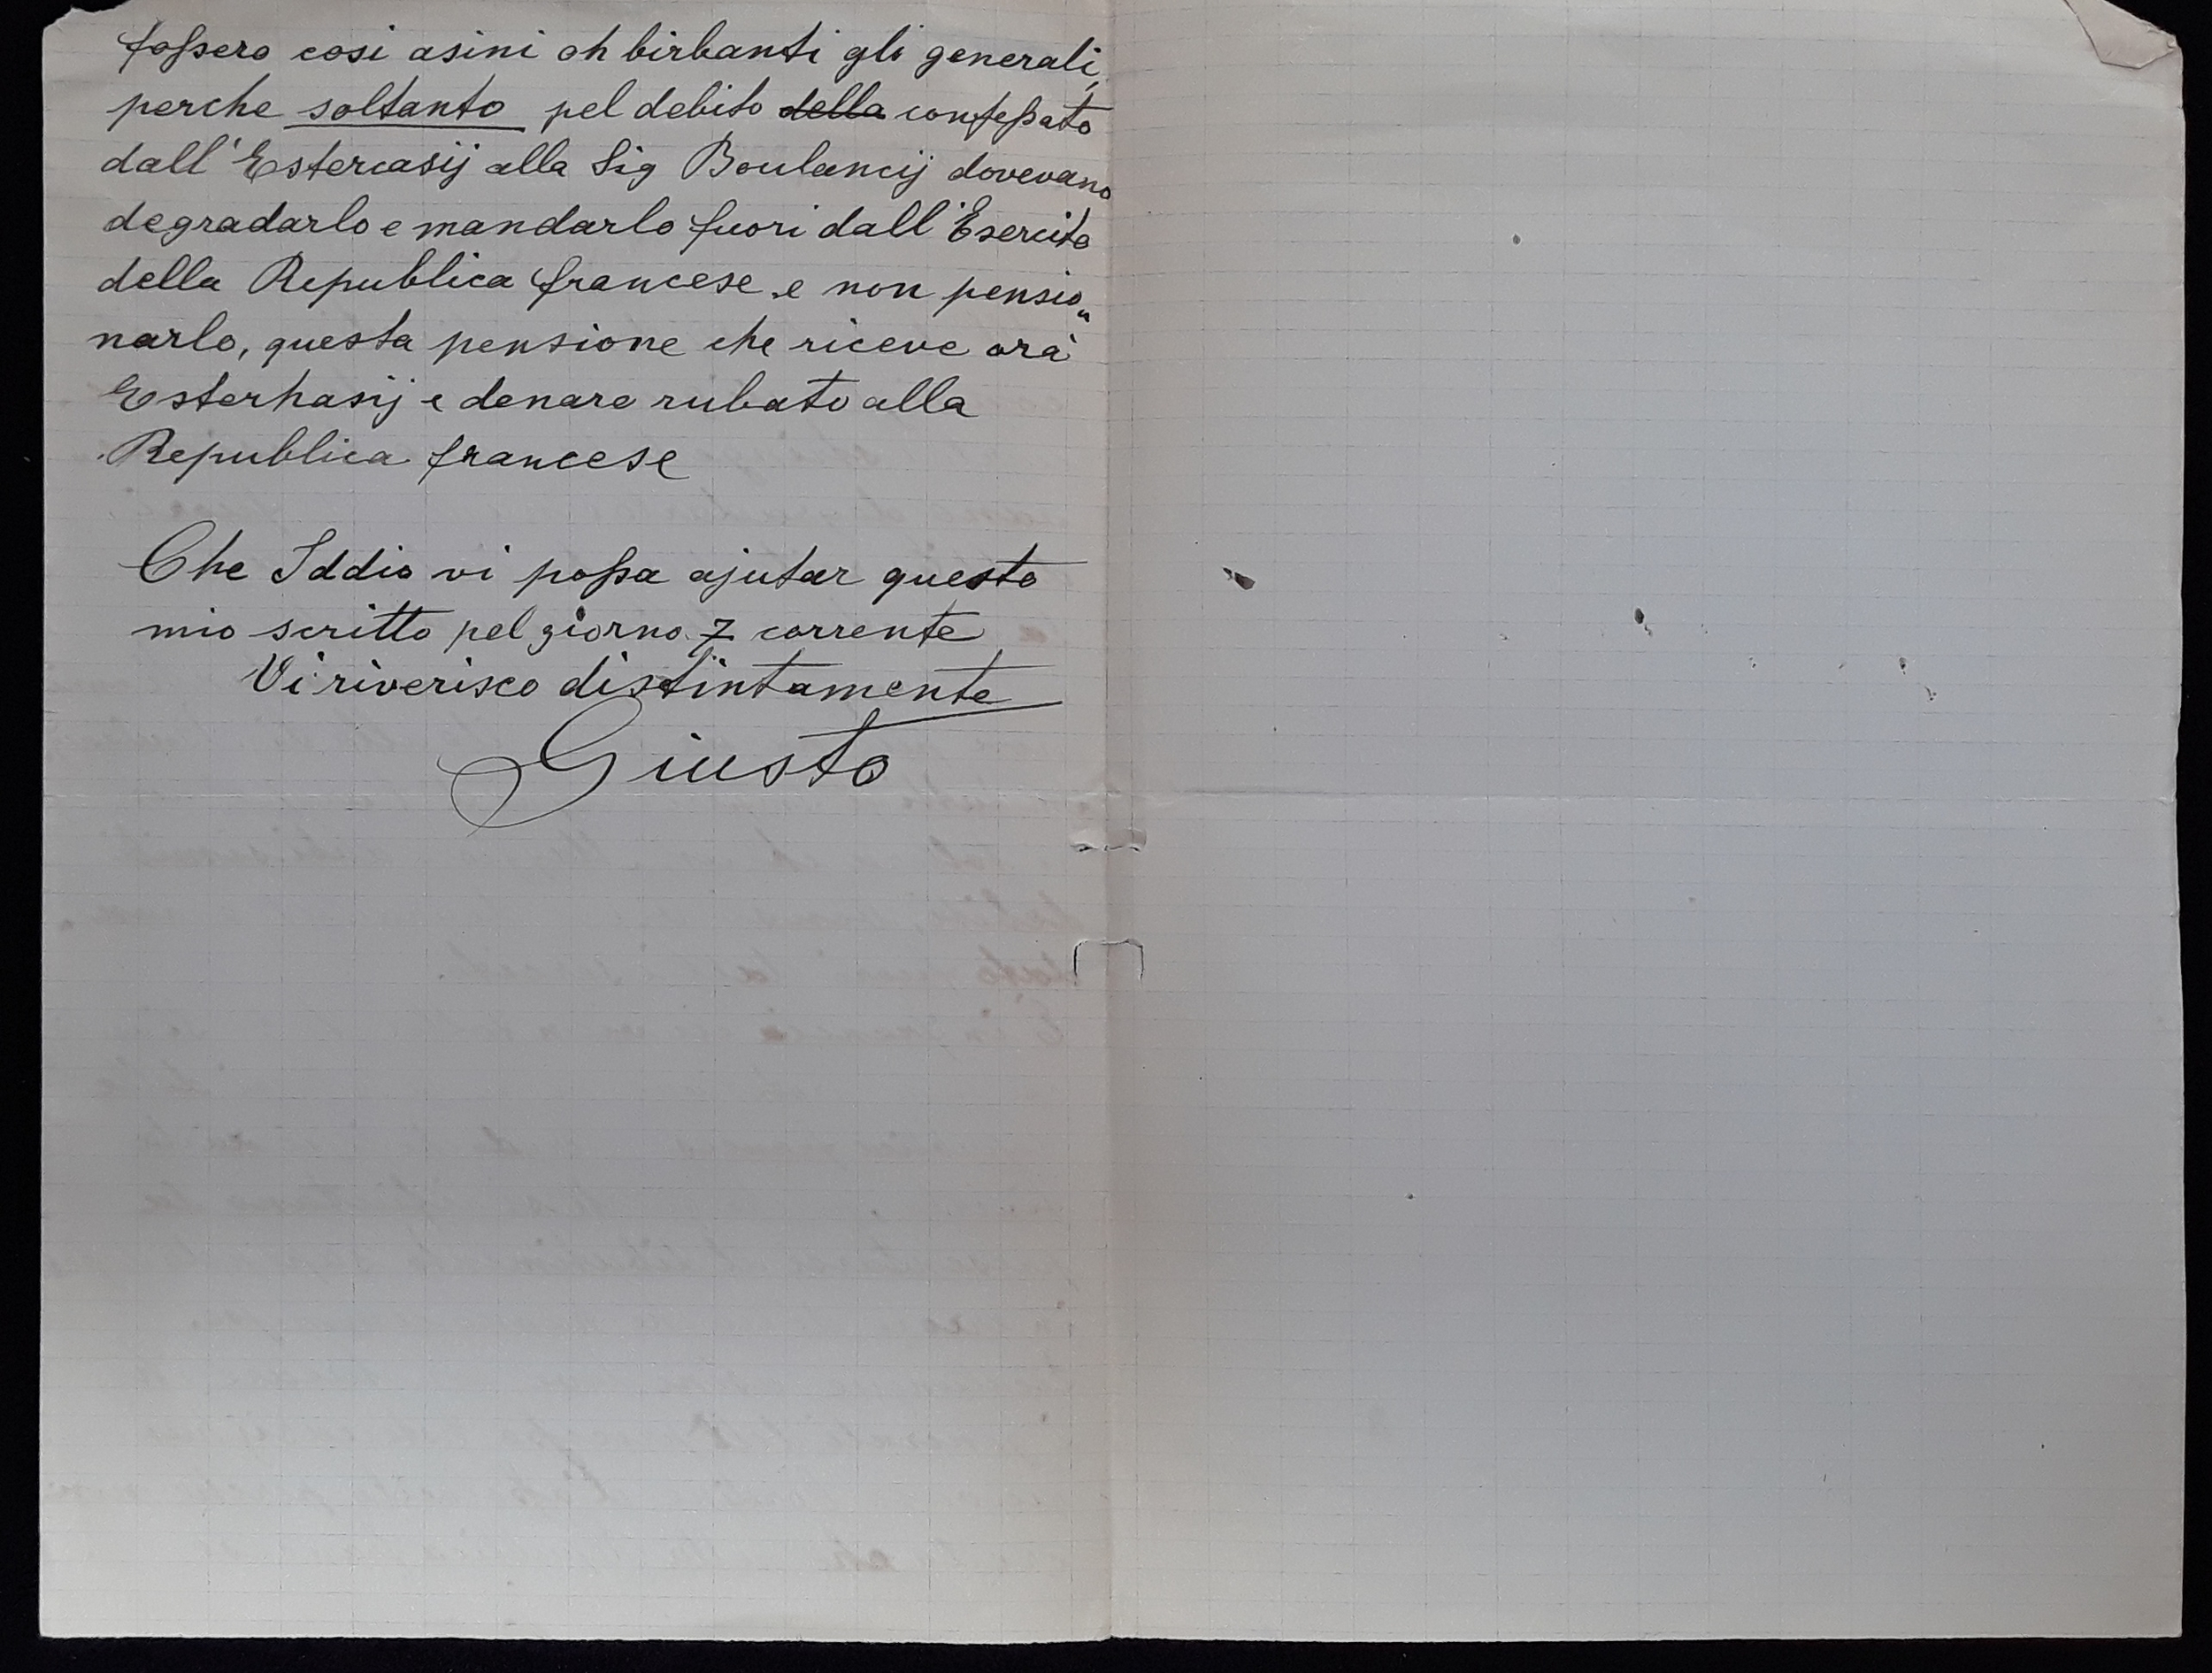 fossero cosi asini oh birbanti gli generali,
perche soltanto pel debito della confessato
dall'Estercasij alla Sig Boulancij dovevano
degradarlo e mandarlo fuori dall'Esercito
della Republica francese e non pensio„
narlo, questa pensione che riceve orà
Esterhasij e denare rubato alla
Republica francese
Che Iddio vi possa ajutar questo
mio scritto pel giorno 7 corrente
Vi riverisco distintamente
Giusto